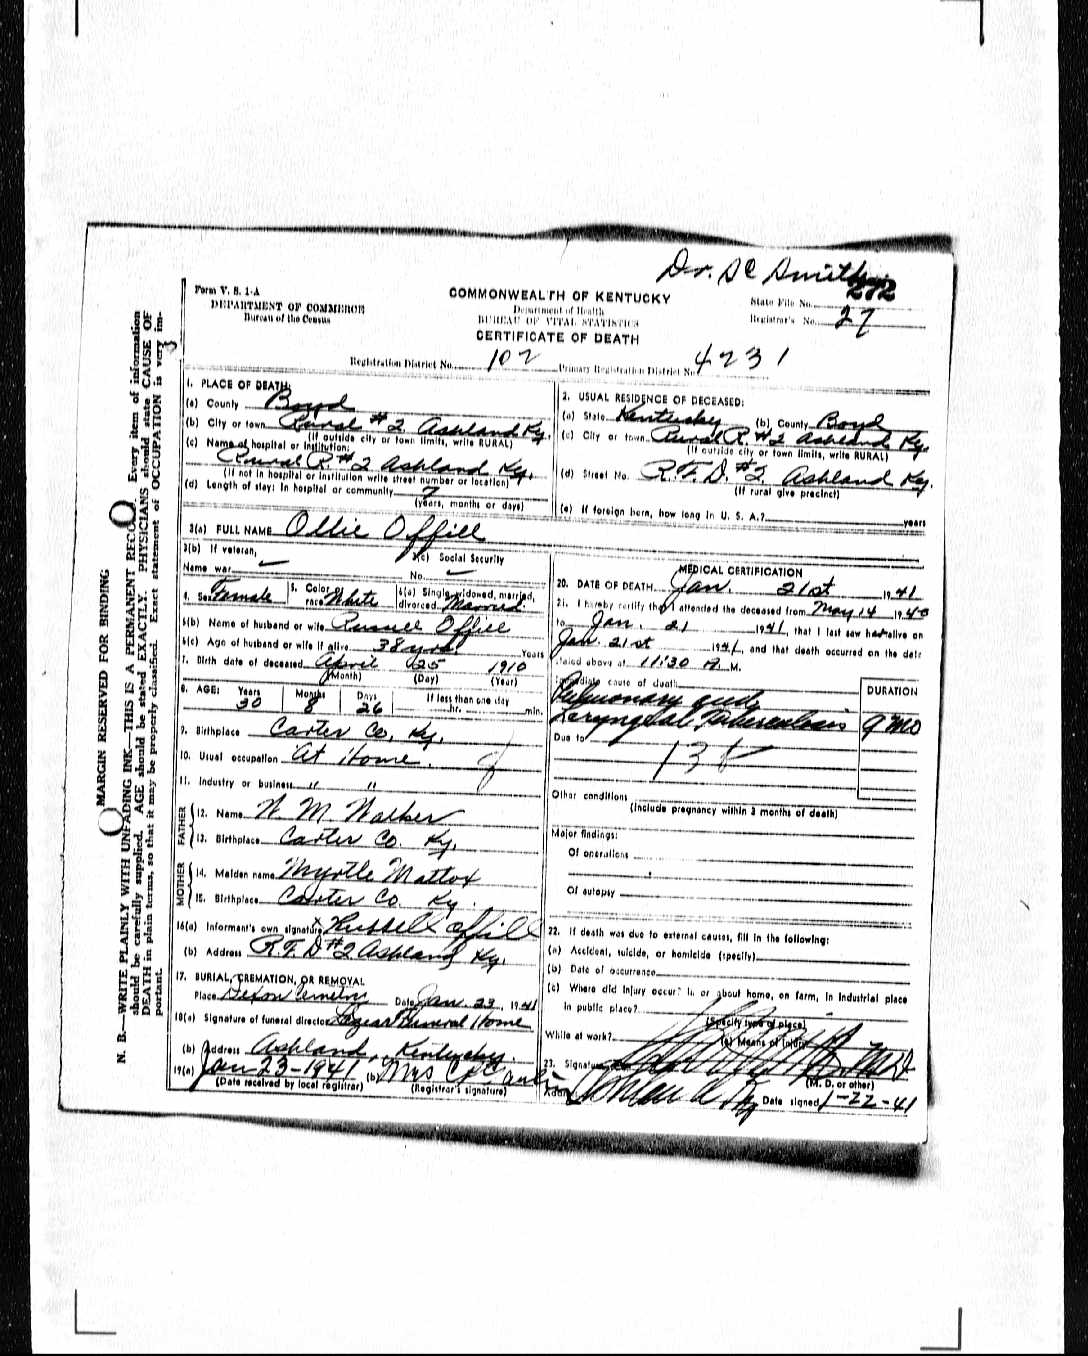 Dr. S C Smith
Form V. S. 1-A
DEPARTMENT OF COMMERCE
Bureau of the Census
COMMONWEALTH OF KENTUCKY
Department of Health
BUREAU OF VITAL STATISTICS
CERTIFICATE OF DEATH
State File No. 272
Registrar's No. 27
Registration District No. 102 Primary Registration District No. 4231
MARGIN RESERVED FOR BINDING
N. B.—WRITE PLAINLY WITH UNFADING INK—THIS IS A PERMANENT RECORD. Every item of information
should be carefully supplied. AGE should be stated EXACTLY. PHYSICIANS should state CAUSE OF
DEATH in plain terms, so that it may be properly classified. Exact statement of OCCUPATION is very im-
portant.
1. PLACE OF DEATH:
(a) County Boyd
(b) City or town Rural #2 Ashland Ky.
(If outside city or town limits, write RURAL)
(c) Name of hospital or institution:
Rural R. #2 Ashland Ky.
(If not in hospital or institution write street number or location)
(d) Length of stay: In hospital or community 7
(years, months or days)
2. USUAL RESIDENCE OF DECEASED:
(a) State Kentucky (b) County Boyd
(c) City or town Rural R. #2 Ashland Ky.
(If outside city or town limits, write RURAL)
(d) Street No. R.F.D. #2 Ashland Ky.
(If rural give precinct)
(e) If foreign born, how long in U. S. A.? years
3(a) FULL NAME Ollie Offill
3(b) If veteran,
Name war
3(c) Social Security
No.
4. Sex Female 5. Color or race White 6(a) Single, widowed, married, divorced Married
6(b) Name of husband or wife Russell Offill
6(c) Age of husband or wife if alive 38 yrs Years
7. Birth date of deceased April 25 1910
(Month) (Day) (Year)
8. AGE: Years 30 Months 8 Days 26 If less than one day hr. min.
9. Birthplace Carter Co, Ky.
10. Usual occupation At Home.
11. Industry or business " "
FATHER
12. Name W M Walker
13. Birthplace Carter Co. Ky.
MOTHER
14. Maiden name Myrtle Mattox
15. Birthplace Carter Co Ky.
16(a) Informant's own signature x Russell Offill
(b) Address R.F.D #2 Ashland Ky.
17. BURIAL, CREMATION, OR REMOVAL
Place Dixon Cemetry Date Jan. 23, 1941
18(a) Signature of funeral director Lazear Funeral Home
(b) Address Ashland, Kentucky.
19(a) Jan-23-1941 (b) Mrs
(Date received by local registrar) (Registrar's signature)
MEDICAL CERTIFICATION
20. DATE OF DEATH Jan. 21st 1941
21. I hereby certify that I attended the deceased from May 14 1940
to Jan. 21 1941, that I last saw her alive on
Jan. 21st 1941, and that death occurred on the date
stated above at 11:30 A. M.
Immediate cause of death
Pulmonary and
Laryngeal Tuberculosis
DURATION
9 mo
Due to
13
Other conditions
(Include pregnancy within 3 months of death)
Major findings:
Of operations
Of autopsy
22. If death was due to external causes, fill in the following:
(a) Accident, suicide, or homicide (specify)
(b) Date of occurrence
(c) Where did injury occur? In or about home, on farm, in industrial place
in public place?
(Specify type of place)
While at work? (e) Means of injury
23. Signature M D
(M. D. or other)
Address Ashland Ky Date signed 1-22-41